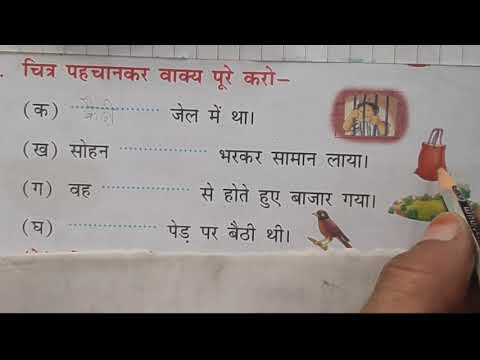 चित्र पहचानकर वाक्य पूरे करो–
(क) कैदी जेल में था।
(ख) सोहन ............ भरकर सामान लाया।
(ग) वह ............ से होते हुए बाजार गया।
(घ) ............ पेड़ पर बैठी थी।